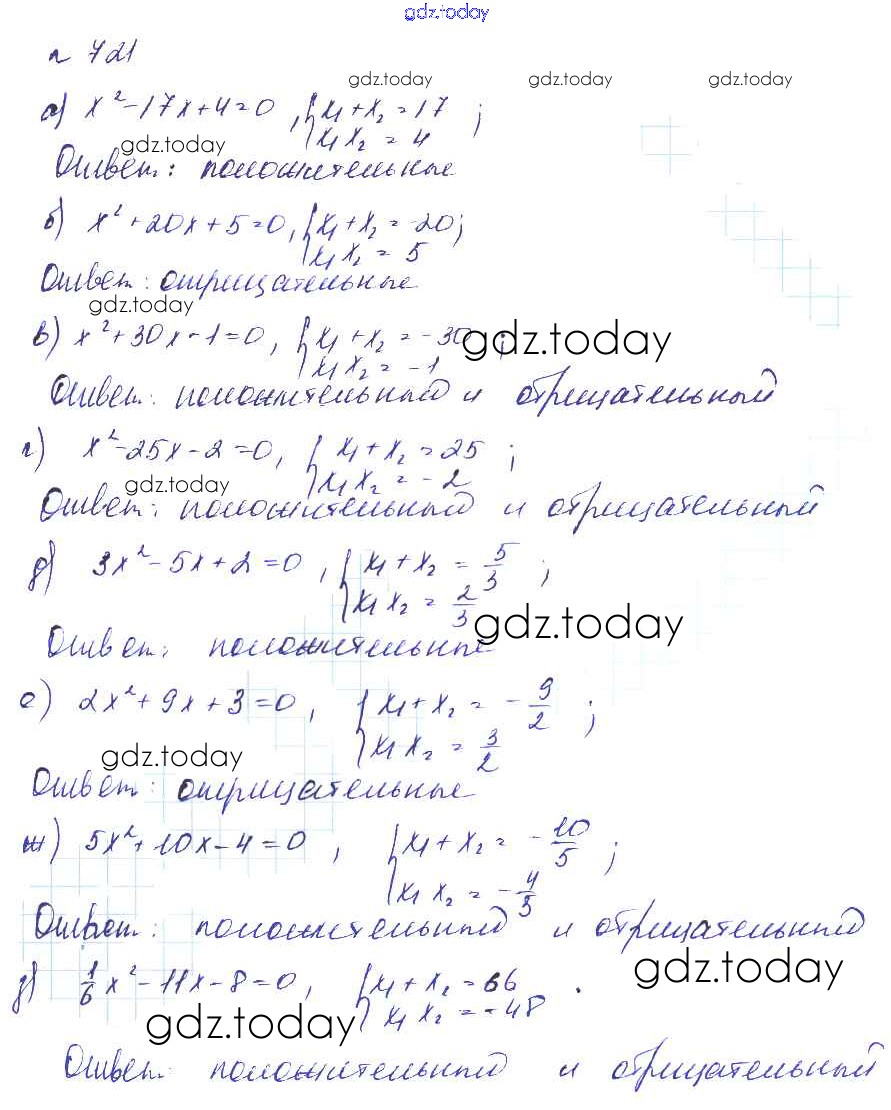 gdz.today
n 721
gdz.today gdz.today gdz.today
а) x² - 17x + 4 = 0, { x₁ + x₂ = 17
x₁ x₂ = 4 ;
gdz.today
Ответ: положительные
б) x² + 20x + 5 = 0, { x₁ + x₂ = -20;
x₁ x₂ = 5
Ответ: отрицательные
gdz.today
в) x² + 30x - 1 = 0, { x₁ + x₂ = -30 ;
x₁ x₂ = -1
gdz.today
Ответ: положительный и отрицательный
г) x² - 25x - 2 = 0, { x₁ + x₂ = 25 ;
x₁ x₂ = -2
gdz.today
Ответ: положительный и отрицательный
д) 3x² - 5x + 2 = 0, { x₁ + x₂ = 5/3 ;
x₁ x₂ = 2/3
gdz.today
Ответ: положительные
е) 2x² + 9x + 3 = 0, { x₁ + x₂ = - 9/2 ;
x₁ x₂ = 3/2
gdz.today
Ответ: отрицательные
ж) 5x² + 10x - 4 = 0, { x₁ + x₂ = - 10/5 ;
x₁ x₂ = - 4/5
Ответ: положительный и отрицательный
gdz.today
з) 1/6 x² - 11x - 8 = 0, { x₁ + x₂ = 66 .
x₁ x₂ = -48
gdz.today
Ответ: положительный и отрицательный